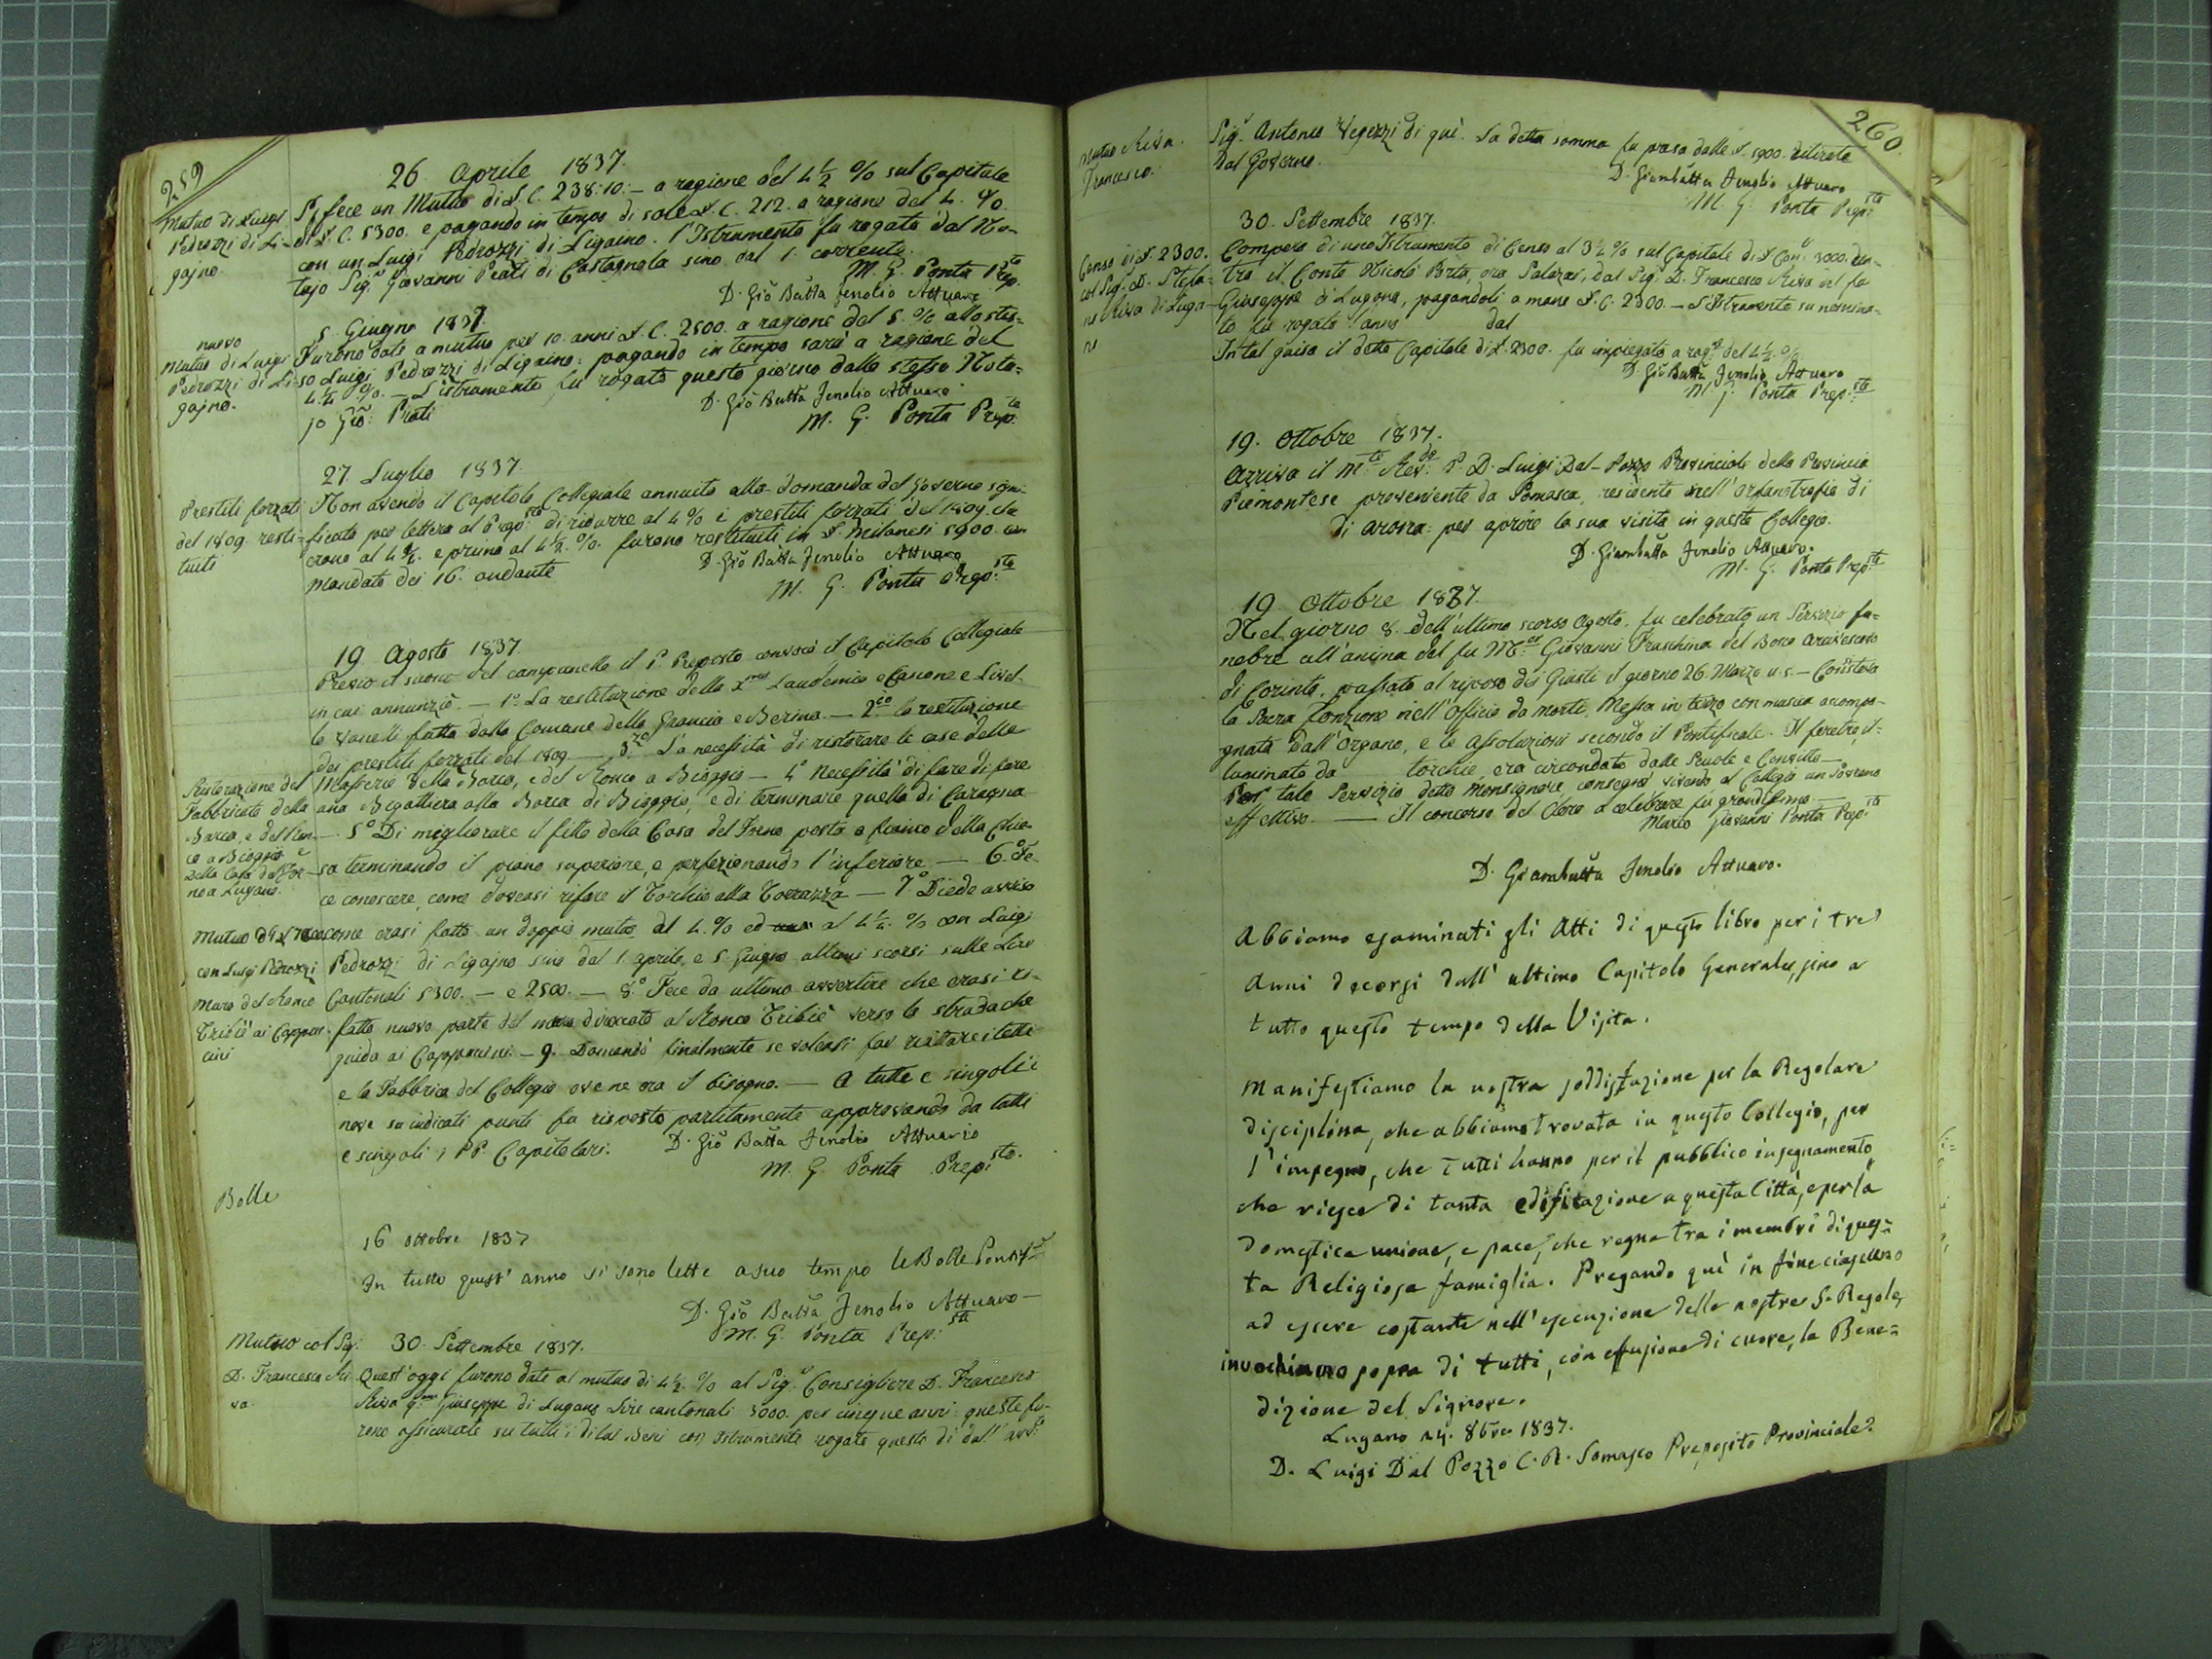 259
26. Aprile 1837.
Mutuo di Luigi
Pedrozzi di Li-
gajno.
Si fece un Mutuo di £. C. 238:10:- a ragione del 4½ % sul Capitale
di £. C. 5300. e pagando in tempo di sole £. C. 212. a ragione del 4. %.
con un Luigi Pedrozzi di Ligaino. l'Istrumento fu rogato dal No-
tajo Sig.r Giovanni Prati di Castagnola sino dal 1. corrente.
M. G. Ponta Prep.to
D. Gio Batta Fenolio Attuaro
5. Giugno 1837.
nuovo
Mutuo di Luigi
Pedrozzi di Li-
gajno.
Furono dati a mutuo per 10. anni £. C. 2500. a ragione del 5. % allo stes-
so Luigi Pedrozzi di Ligaino: pagando in tempo sarà a ragione del
4¼ %. — L'istrumento fu rogato questo giorno dallo stesso Nota-
jo Gio: Prati
D. Gio Batta Fenolio Attuaro
M. G. Ponta Prep.to
27. Luglio 1837.
Prestiti forzati
del 1809. resti-
tuiti
Non avendo il Capitolo Collegiale annuito alla domanda del Governo signi-
ficata per lettera al Prep.sto di ridurre al 4 % i prestiti forzati del 1809. che
erano al 4½. e prima al 4½ %. furono restituiti in £. Milanesi 5900. con
mandato dei 16. andante
D. Gio Batta Fenolio Attuaro
M. G. Ponta Prepo.sto
19. Agosto 1837.
Previo il suono del campanello il P. Preposto convocò il Capitolo Collegiale
in cui annunziò. — 1.o La restituzione della Laudemio e Canone e Livel-
lo fatta dalla Comune della Grancia e Berina. — 2.do la restituzione
dei prestiti forzati del 1809. — 3.zo La necessità di ristorare le case delle
Ristorazione del
Fabbricato della
Barca, e del Ron-
co a Bioggio e
Della Casa del For-
no a Lugano.
Masserie della Barca, e del Ronco a Bioggio — 4.o Necessità di fare di fare
una Begattiera alla Barca di Bioggio, e di terminare quella di Caragna
— 5.o Di migliorare il fitto della Casa del Forno posta a fianco della Chie-
sa terminando il piano superiore, e perfezionando l'inferiore. — 6.o Fe-
ce conoscere, come doveasi rifare il Torchio alla Torrazza — 7.o Diede avviso
come erasi fatto un doppio mutuo al 4. % ed al 4¼. % con Luigi
con Luigi Pedrozzi
Pedrozzi di Ligajno sino dal 1. aprile, e 5. Giugno ultimi scorsi sulle Lire
Muro del Ronco
Tribiè ai Cappuc-
cini
Cantonali 5300. — e 2500. — 8.o Fece da ultimo avvertire che erasi ri-
fatta nuova parte del muro diroccato al Ronco Tribiè verso la strada che
guida ai Cappuccini. — 9. Domandò finalmente se voleasi far riattare i tetti
e la Fabbrica del Collegio ove ne era il bisogno. — A tutte e singoli i
nove su indicati punti fu risposto partitamente approvando da tutti
e singoli i PP. Capitolari.
D. Gio Batta Fenolio Attuario
M. G. Ponta Prep.sto.
Bolle
16 ottobre 1837
In tutto quest' anno si sono lette a suo tempo le Bolle Pontif.
D. Gio Batta Fenolio Attuaro
M. G. Ponta Prep.sto
Mutuo col Sig.
D. Francesco Ri-
va.
30. Settembre 1837.
Quest'oggi furono date al mutuo di 4½. % al Sig.r Consigliere D. Francesco
Riva q.m Giuseppe di Lugano Lire cantonali 3000. per cinque anni: queste fu-
rono assicurate su tutti i di lui Beni con Istrumento rogato questo dì dall' avv.to
260.
Mutuo Riva.
Francesco.
Sig.r Antonio Vegezzi di quì. La detta somma fu presa dalle £. 5900. ritirate
dal Governo.
D. Giambatta Fenolio Attuaro
M. G. Ponta Prep.sto
30. Settembre 1837.
Censo di £. 2300.
col Sig. D. Stefa-
no Riva di Luga-
no
Compera di uno Istrumento di Censo al 3½ % sul Capitale di £. Can.li 3000. con-
tra il Conte Nicolò Riva, ora Palazzi, dal Sig.r D. Francesco Riva del fu
Giuseppe di Lugano, pagandoli a mano £. C. 2300. — L'Istrumento su nomina-
to fu rogato l'anno dal
In tal guisa il detto Capitale di £. 2300. fu impiegato a rag.e del 4½. %
D. Gio Batta Fenolio Attuaro
M. G. Ponta Prep.sto
19. Ottobre 1837.
Arriva il M.to Rev.do P. D. Luigi Dal-Pozzo Provinciale della Provincia
Piemontese proveniente da Somasca, residente nell'Orfanotrofio di
di Arona: per aprire la sua visita in questo Collegio.
D. Giambatta Fenolio Attuaro.
M. G. Ponta Prep.to
19. Ottobre 1837.
Nel giorno 8. dell'ultimo scorso Agosto. fu celebrato un Servizio fu-
nebre all'anima del fu M.or Giovanni Fraschina del Bosco Arcivescovo
di Corinto, passato al riposo dei Giusti il giorno 26. Marzo u. s. — Consisteva
la Sacra funzione nell'Officio da morte, Messa in terzo con musica accompa-
gnata dall'Organo, e le Assoluzioni secondo il Pontificale. Il feretro, il-
luminato da torchie, era circondato dalle Scuole e Convitto —
Per tale Servizio detto Monsignore, consegnò vivendo al Collegio un Sovrano
effettivo. — Il concorso del Clero a celebrare fu grandissimo. —
Marco Giovanni Ponta Prep.sto
D. Giambatta Fenolio Attuaro.
Abbiamo esaminati gli Atti di questo libro per i tre
anni decorsi dall' ultimo Capitolo Generale, sino a
tutto questo tempo della Visita.
Manifestiamo la nostra soddisfazione per la Regolare
disciplina, che abbiamo trovata in questo Collegio, per
l'impegno, che tutti hanno per il pubblico insegnamento
che riesce di tanta edificazione a questa Città, e per la
domestica unione, e pace, che regna tra i membri di ques-
ta Religiosa famiglia. Pregando quì in fine ciascuno
ad essere costante nell'esecuzione delle nostre S. Regole,
invochiamo sopra di tutti, con effusione di cuore, la Bene-
dizione del Signore.
Lugano 24. 8bre 1837.
D. Luigi Dal Pozzo C. R. Somasco Preposito Provinciale